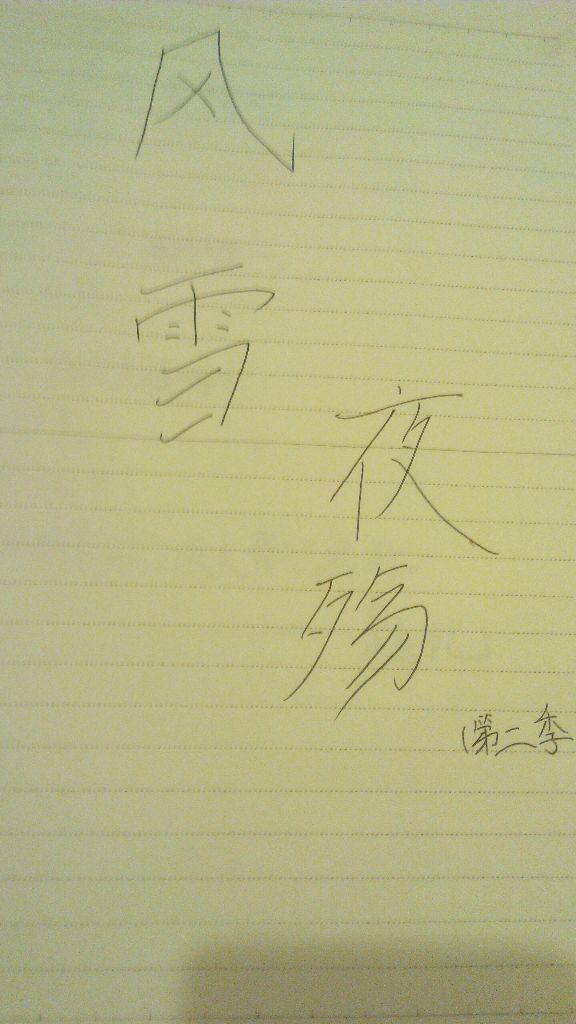 风雪
夜殇
(第二季